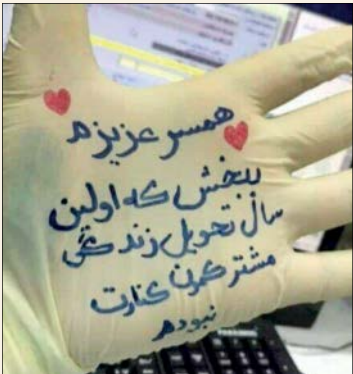 همسر عزیزم
ببخش که اولین
سال تحویل زندگی
مشترکمون کنارت
نبودم